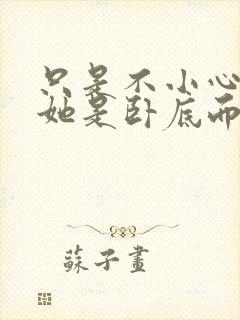 只是不小心
她是卧底而
蘇子畫